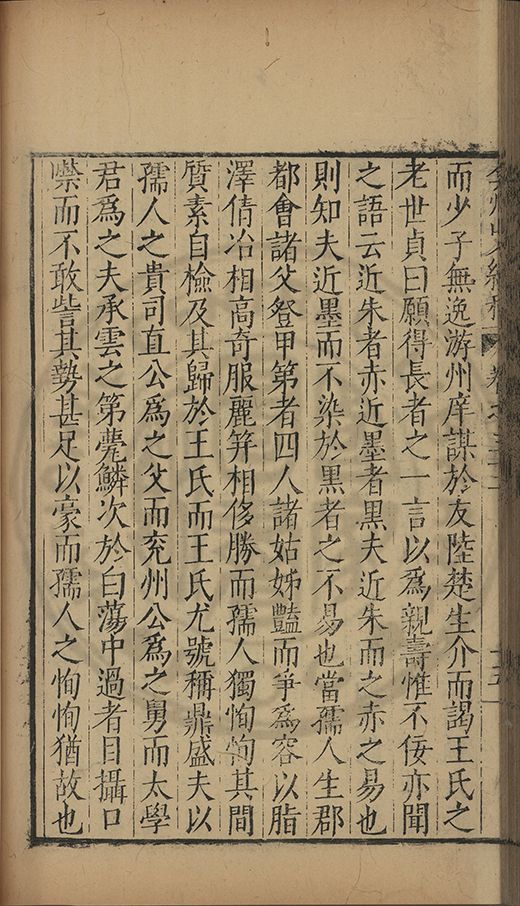 而少子無逸游州庠謀於友陸楚生介而謁王氏之
老世貞曰願得長者之一言以爲親壽惟不佞亦聞
之語云近朱者赤近墨者黑夫近朱而之赤之易也
則知夫近墨而不染於黑者之不易也當孺人生郡
都會諸父登甲第者四人諸姑姊豔而爭爲容以脂
澤倩冶相高奇服麗笄相侈勝而孺人獨恂恂其間
質素自檢及其歸於王氏而王氏尤號稱鼎盛夫以
孺人之貴司直公爲之父而兖州公爲之舅而太學
君爲之夫承雲之第甍鱗次於白蕩中過者目攝口
噤而不敢訾其勢甚足以豪而孺人之恂恂猶故也